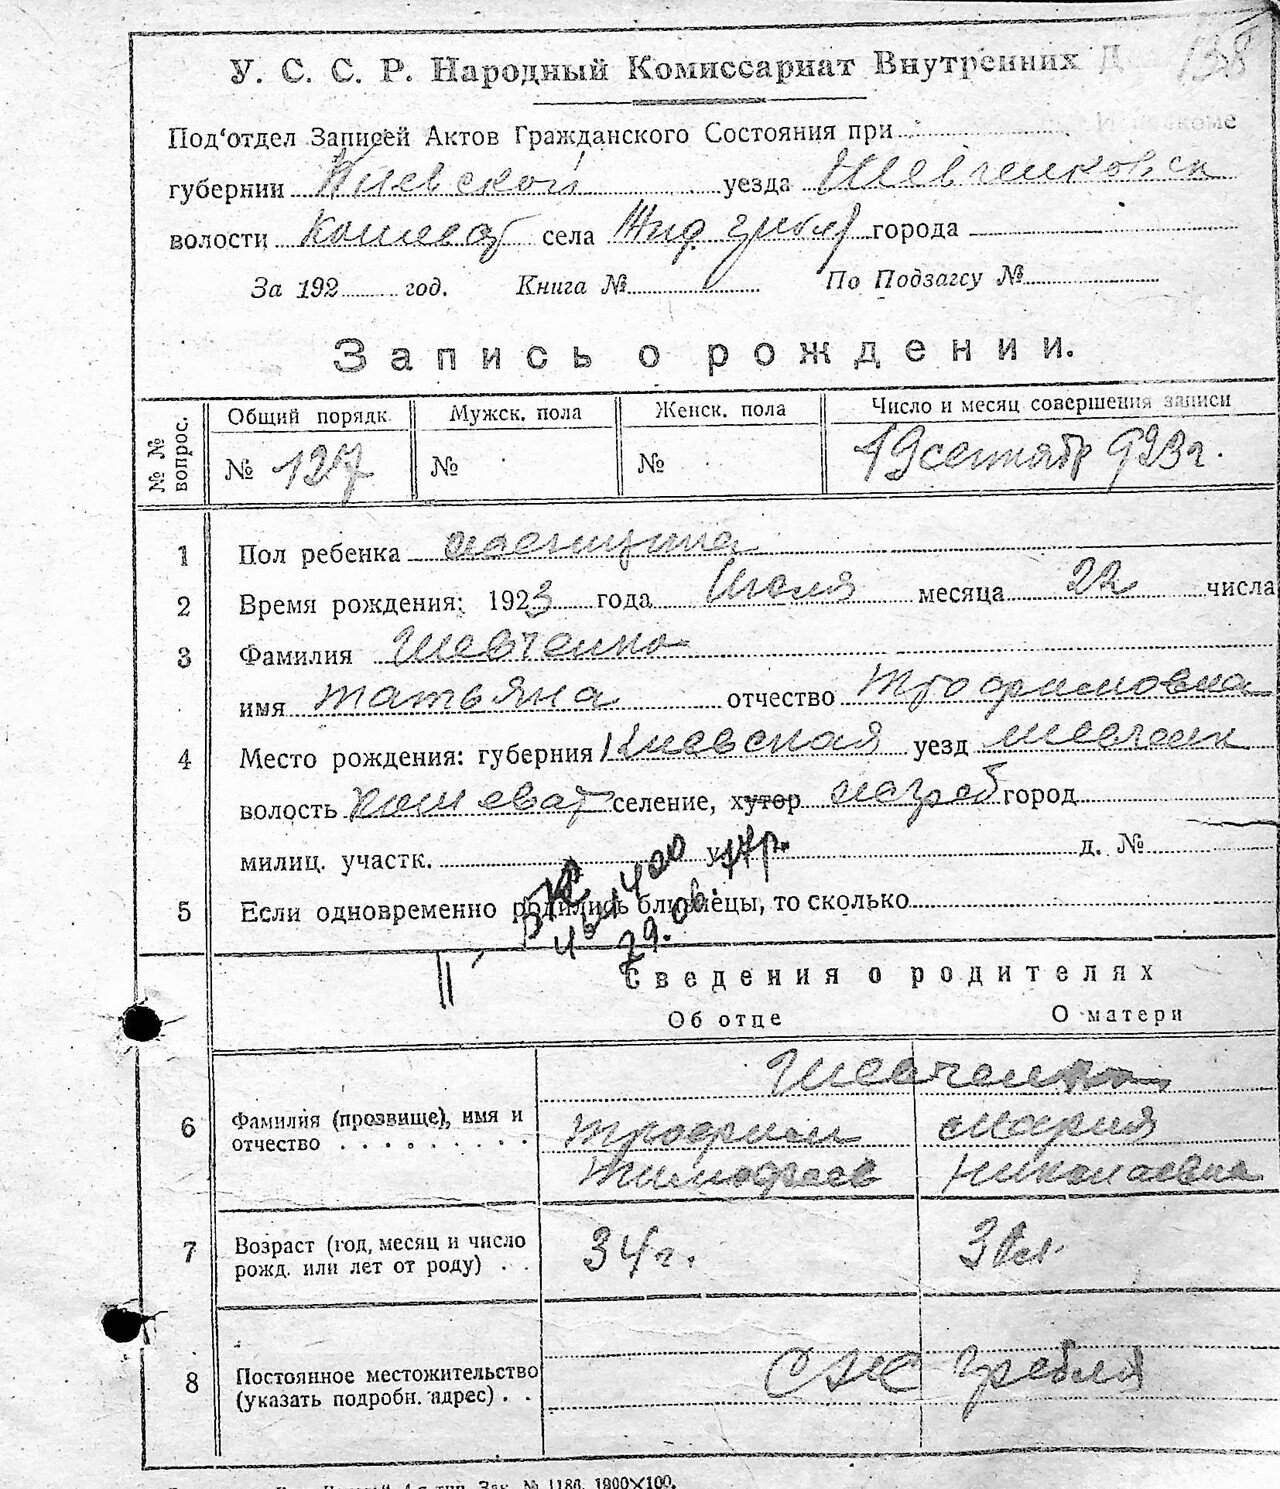 138
У. С. С. Р. Народный Комиссариат Внутренних
Под'отдел Записей Актов Гражданского Состояния при
губернии Киевской уезда Шевченковск
волости Кошеват села Жид. гребля города
За 192 год. Книга № По Подзагсу №
Запись о рождении.
№ № вопрос. Общий порядк. Мужск. пола Женск. пола Число и месяц совершения записи
№ 127 № № 19 сентябр 923 г.
1 Пол ребенка женщина
2 Время рождения: 1923 года Июля месяца 22 числа
3 Фамилия Шевченко
имя Татьяна отчество Трофимовна
4 Место рождения: губерния Киевская уезд шевченк
волость кошеват селение, хутор город
милиц. участк. д. №
5 Если одновременно родились близнецы, то сколько
Сведения о родителях
Об отце О матери
Шевченко
6 Фамилия (прозвище), имя и
отчество . . . . . . . . Трофим Мария
Тимофеев Николаевна
7 Возраст (год, месяц и число
рожд. или лет от роду) . . 34 г.
8 Постоянное местожительство
(указать подробн. адрес) . . СЖ гребля
Зак. № 1186. 1900×100.